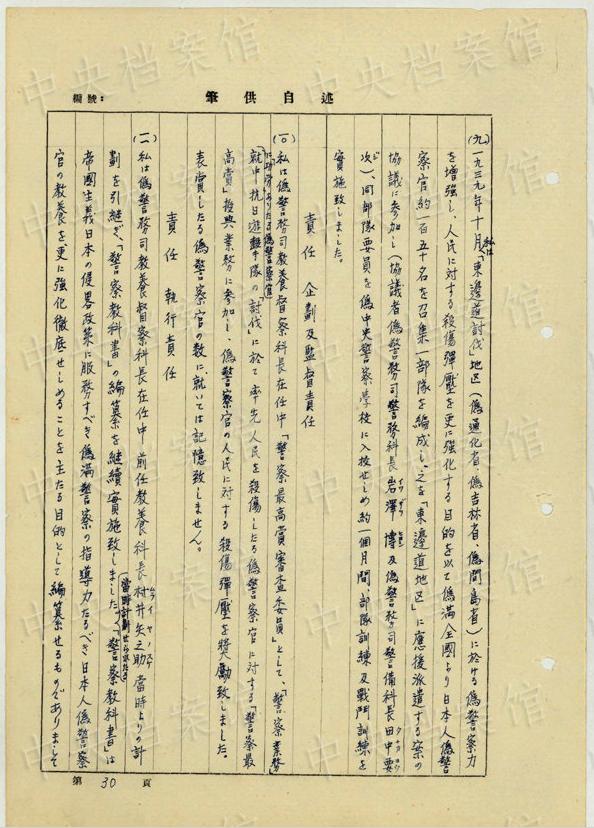 中央档案馆
述自供筆
編號：
(九)一九三九年十月、私は「東邊道討伐」地区(偽通化省、偽吉林省、偽間島省)に於ける偽警察力
を増強し、人民に対する殺傷彈壓を更に強化する目的を以て偽満全國より日本人偽警
察官約一百五十名を召集一部隊を編成し、之を「東邊道地区」に應援派遣する案の
協議に参加し(協議者偽警務司警務科長岩澤博及偽警務司警備科長田中要
次)、同部隊要員を偽中央警察學校に入校せしめ約一個月間、部隊訓練及戰鬥訓練を
實施致しました。
責任 企劃及監督責任
(一〇)私は偽警務司教養督察科長在任中「警察最高賞審査委員」として、「警察業務」
に功労ありたる偽警察官
就中抗日遊擊隊の「討伐」に於て率先人民を殺傷したる偽警察官に対する「警察最
高賞」授典業務に参加し、偽警察官の人民に対する殺傷彈壓を奬勵致しました。
表賞したる偽警察官の数に就いては記憶致しません。
責任 執行責任
(一一)私は偽警務司教養督察科長在任中前任教養科長村井矢之助當時よりの計
劃を引継ぎ、「警察教科書」の編纂を継續實施致しました。「警察教科書」は
當時計劃せられたる
帝國主義日本の侵畧政策に服務すべき偽満警察の指導力たるべき日本人偽警察
官の教養を更に強化徹底せしめることを主たる目的として編纂せるものでありまして
第 30 頁